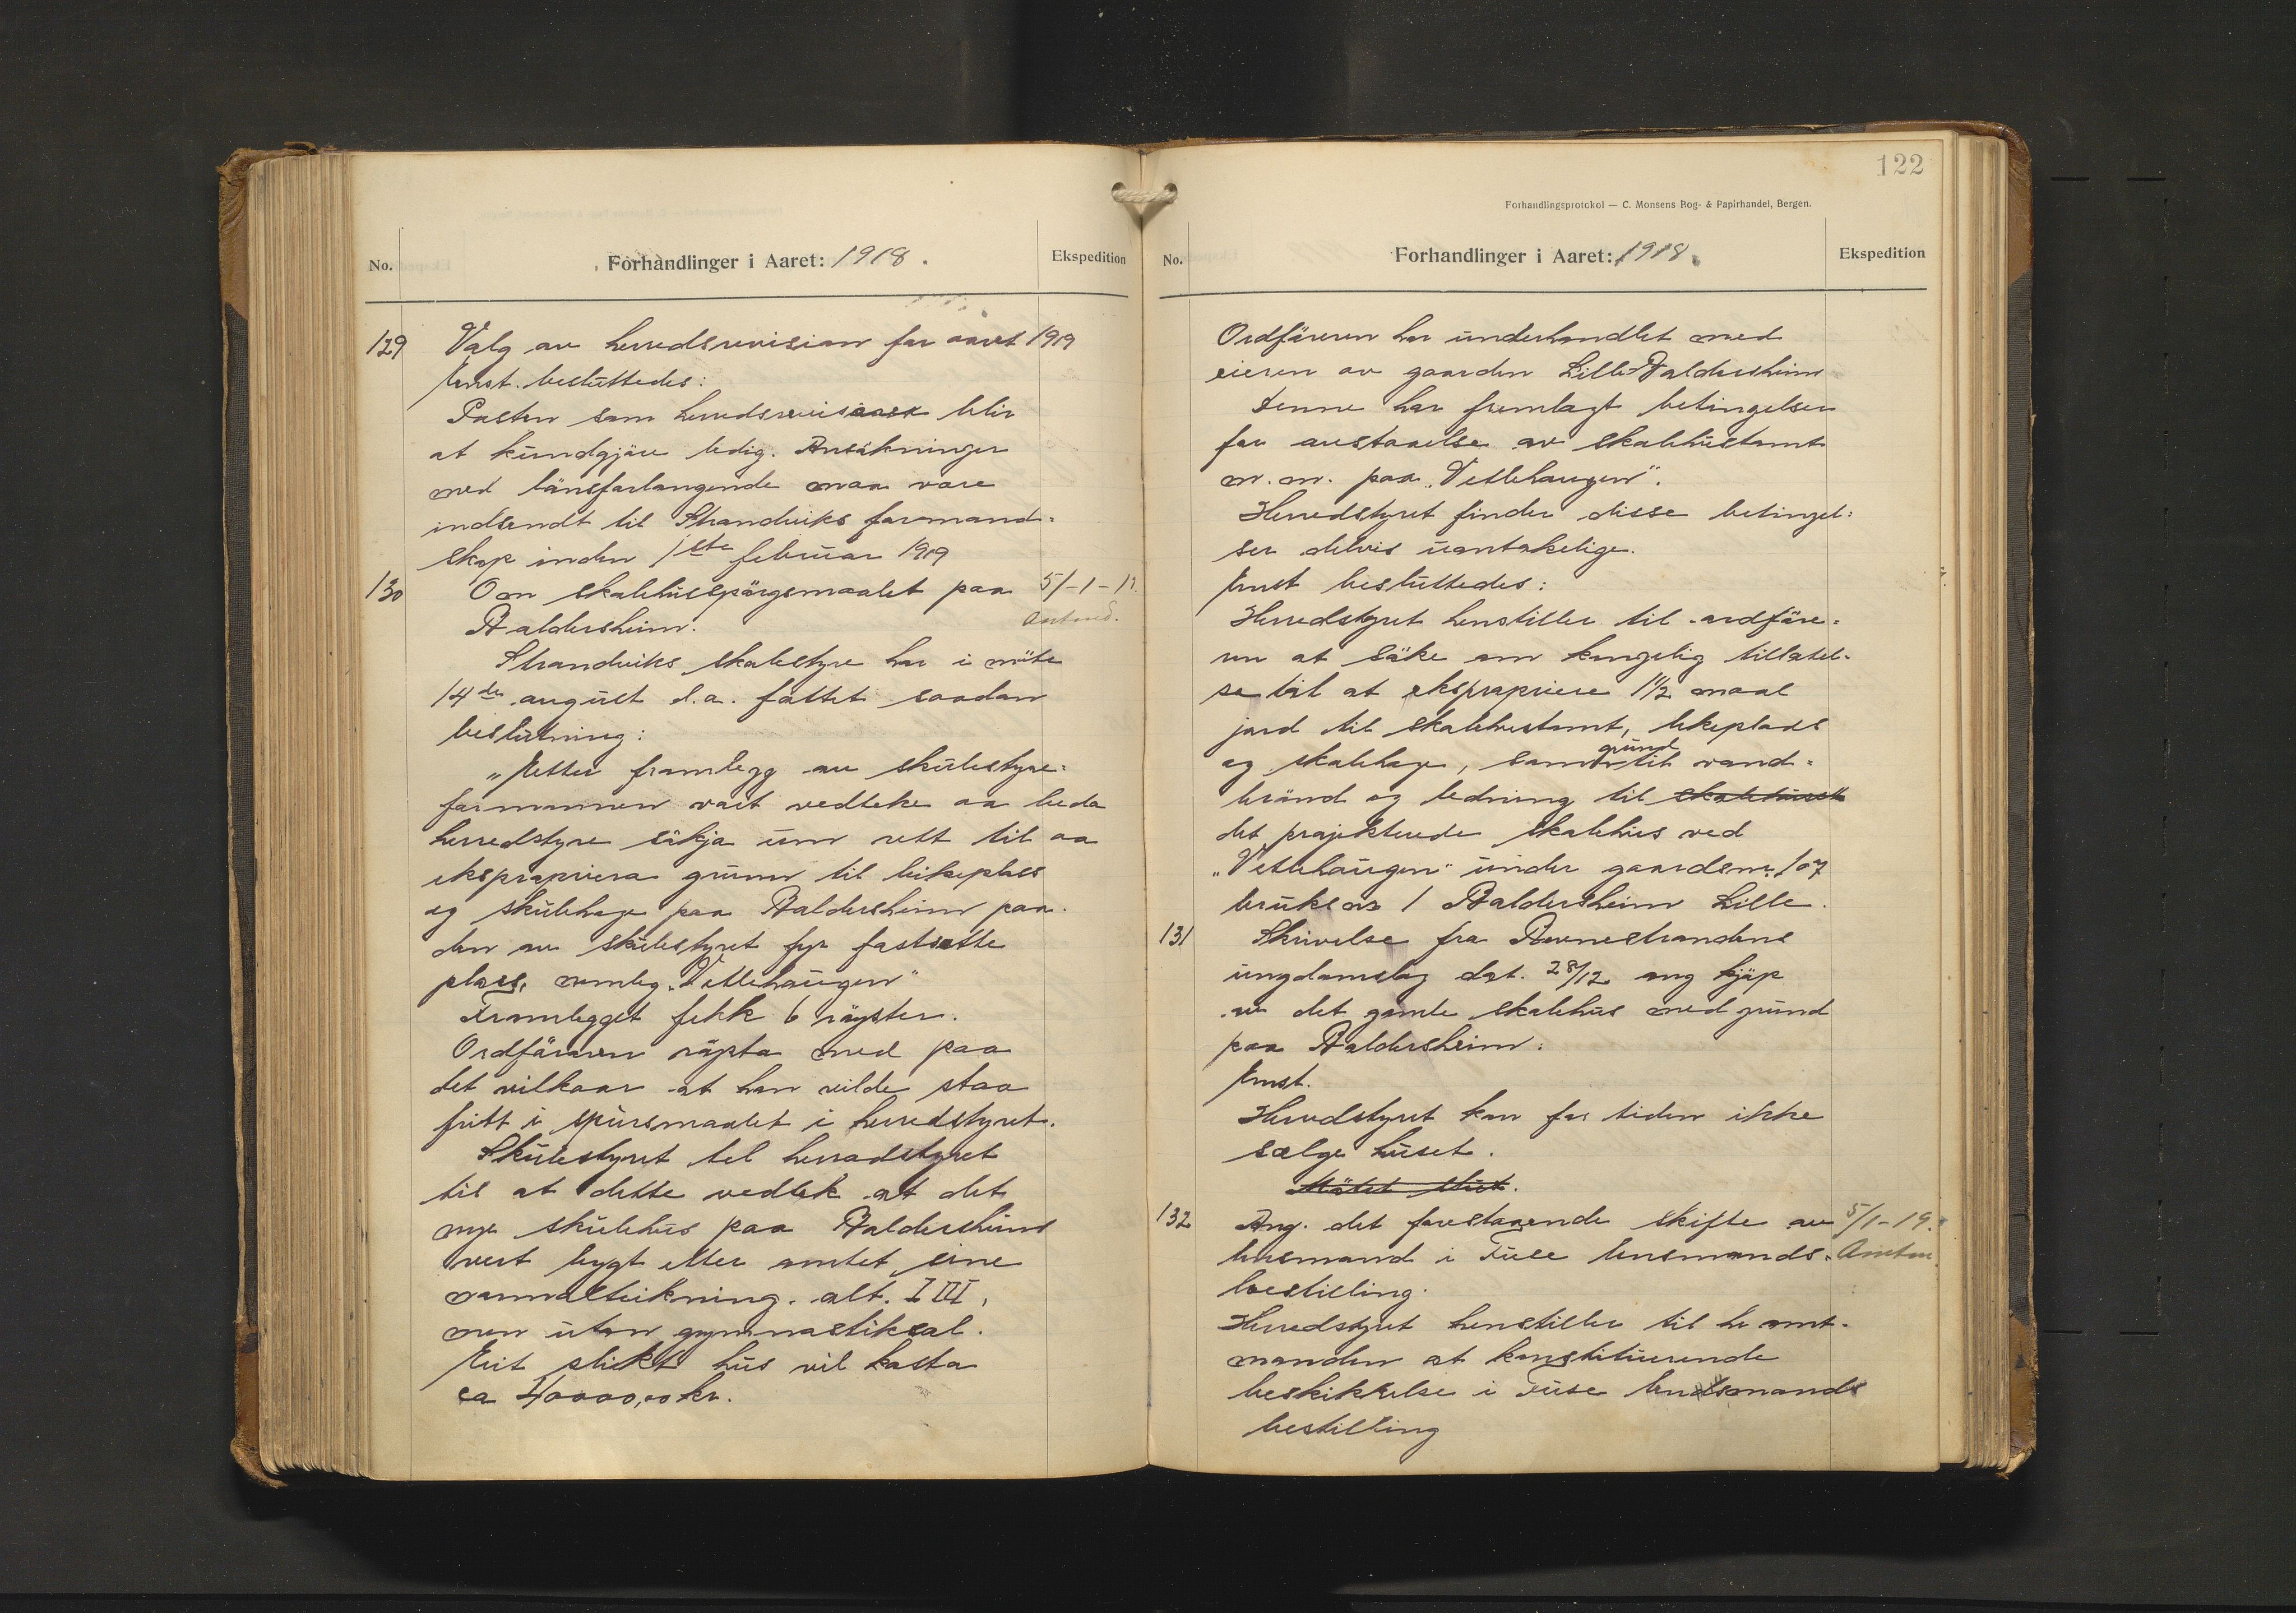 No.
Forhandlinger i Aaret: 1918.
Ekspedition
129 Valg av herredsrevision for aaret 1919
Enst. besluttedes:
Posten som herredsrevisor blir
at kundgjöre ledig. Ansökninger
med lönsforlangende maa være
indsendt til Strandviks formand-
skap inden 1ste februar 1919
130 Om skolehusspörgsmaalet paa 5/-1-19.
Baldersheim.
Strandviks skolestyre har i möte
14de august d.a. fattet saadan
beslutning:
"Etter framlegg av skulestyre-
formannen vart vedteke aa beda
herredstyre sökja um rett til aa
ekspropriera grunn til leikeplass
og skulehage paa Baldersheim paa
den av skulestyret fyr fastsette
plass, nemleg "Vetlehaugen"
Framlegget fekk 6 röyster.
Ordföraren röysta med paa
det vilkaar at han vilde staa
fritt i spursmaalet i herredstyret.
Skulestyret tel herradstyret
til at dette vedtek at det
nye skulehus paa Baldersheim
vert bygt etter amtet sine
normalteikning. alt. I III,
men utan gymnastiksal.
Eit slikt hus vil kosta
ca 40000,00 kr.
122
Forhandlingsprotokol — C. Monsens Bog- & Papirhandel, Bergen.
No.
Forhandlinger i Aaret: 1918.
Ekspedition
Ordföreren har underhandlet med
eieren av gaarden Lille-Baldersheim
denne har fremlagt betingelser
for avstaaelse av skolehustomt
m.m. paa "Vetlehaugen".
Herredstyret finder disse betingel-
ser delvis uantakelige.
Enst besluttedes:
Herredstyret henstiller til ordföre-
ren at söke om kongelig tillatel-
se til at ekspropriere 1 1/2 maal
jord til skolehustomt, lekeplads
og skolehage, samt grund til vand-
brönd og ledning til skolehuset
det projekterede skolehus ved
"Vetlehaugen" under gaardsnr. 107
bruksnr 1 Baldersheim Lille.
131 Skrivelse fra Ævnestrandens
ungdomslag dat. 28/12 ang kjöp
av det gamle skolehus med grund
paa Baldersheim.
Enst.
Herredstyret kan for tiden ikke
sælge huset.
Mötet slut.
132 Ang. det forestaaende skifte av 5/1-19.
lensmand i Fuse lensmands-
bestilling.
Herredstyret henstiller til hr amt-
manden at konstituerende
beskikkelse i Fuse lensmands
bestilling